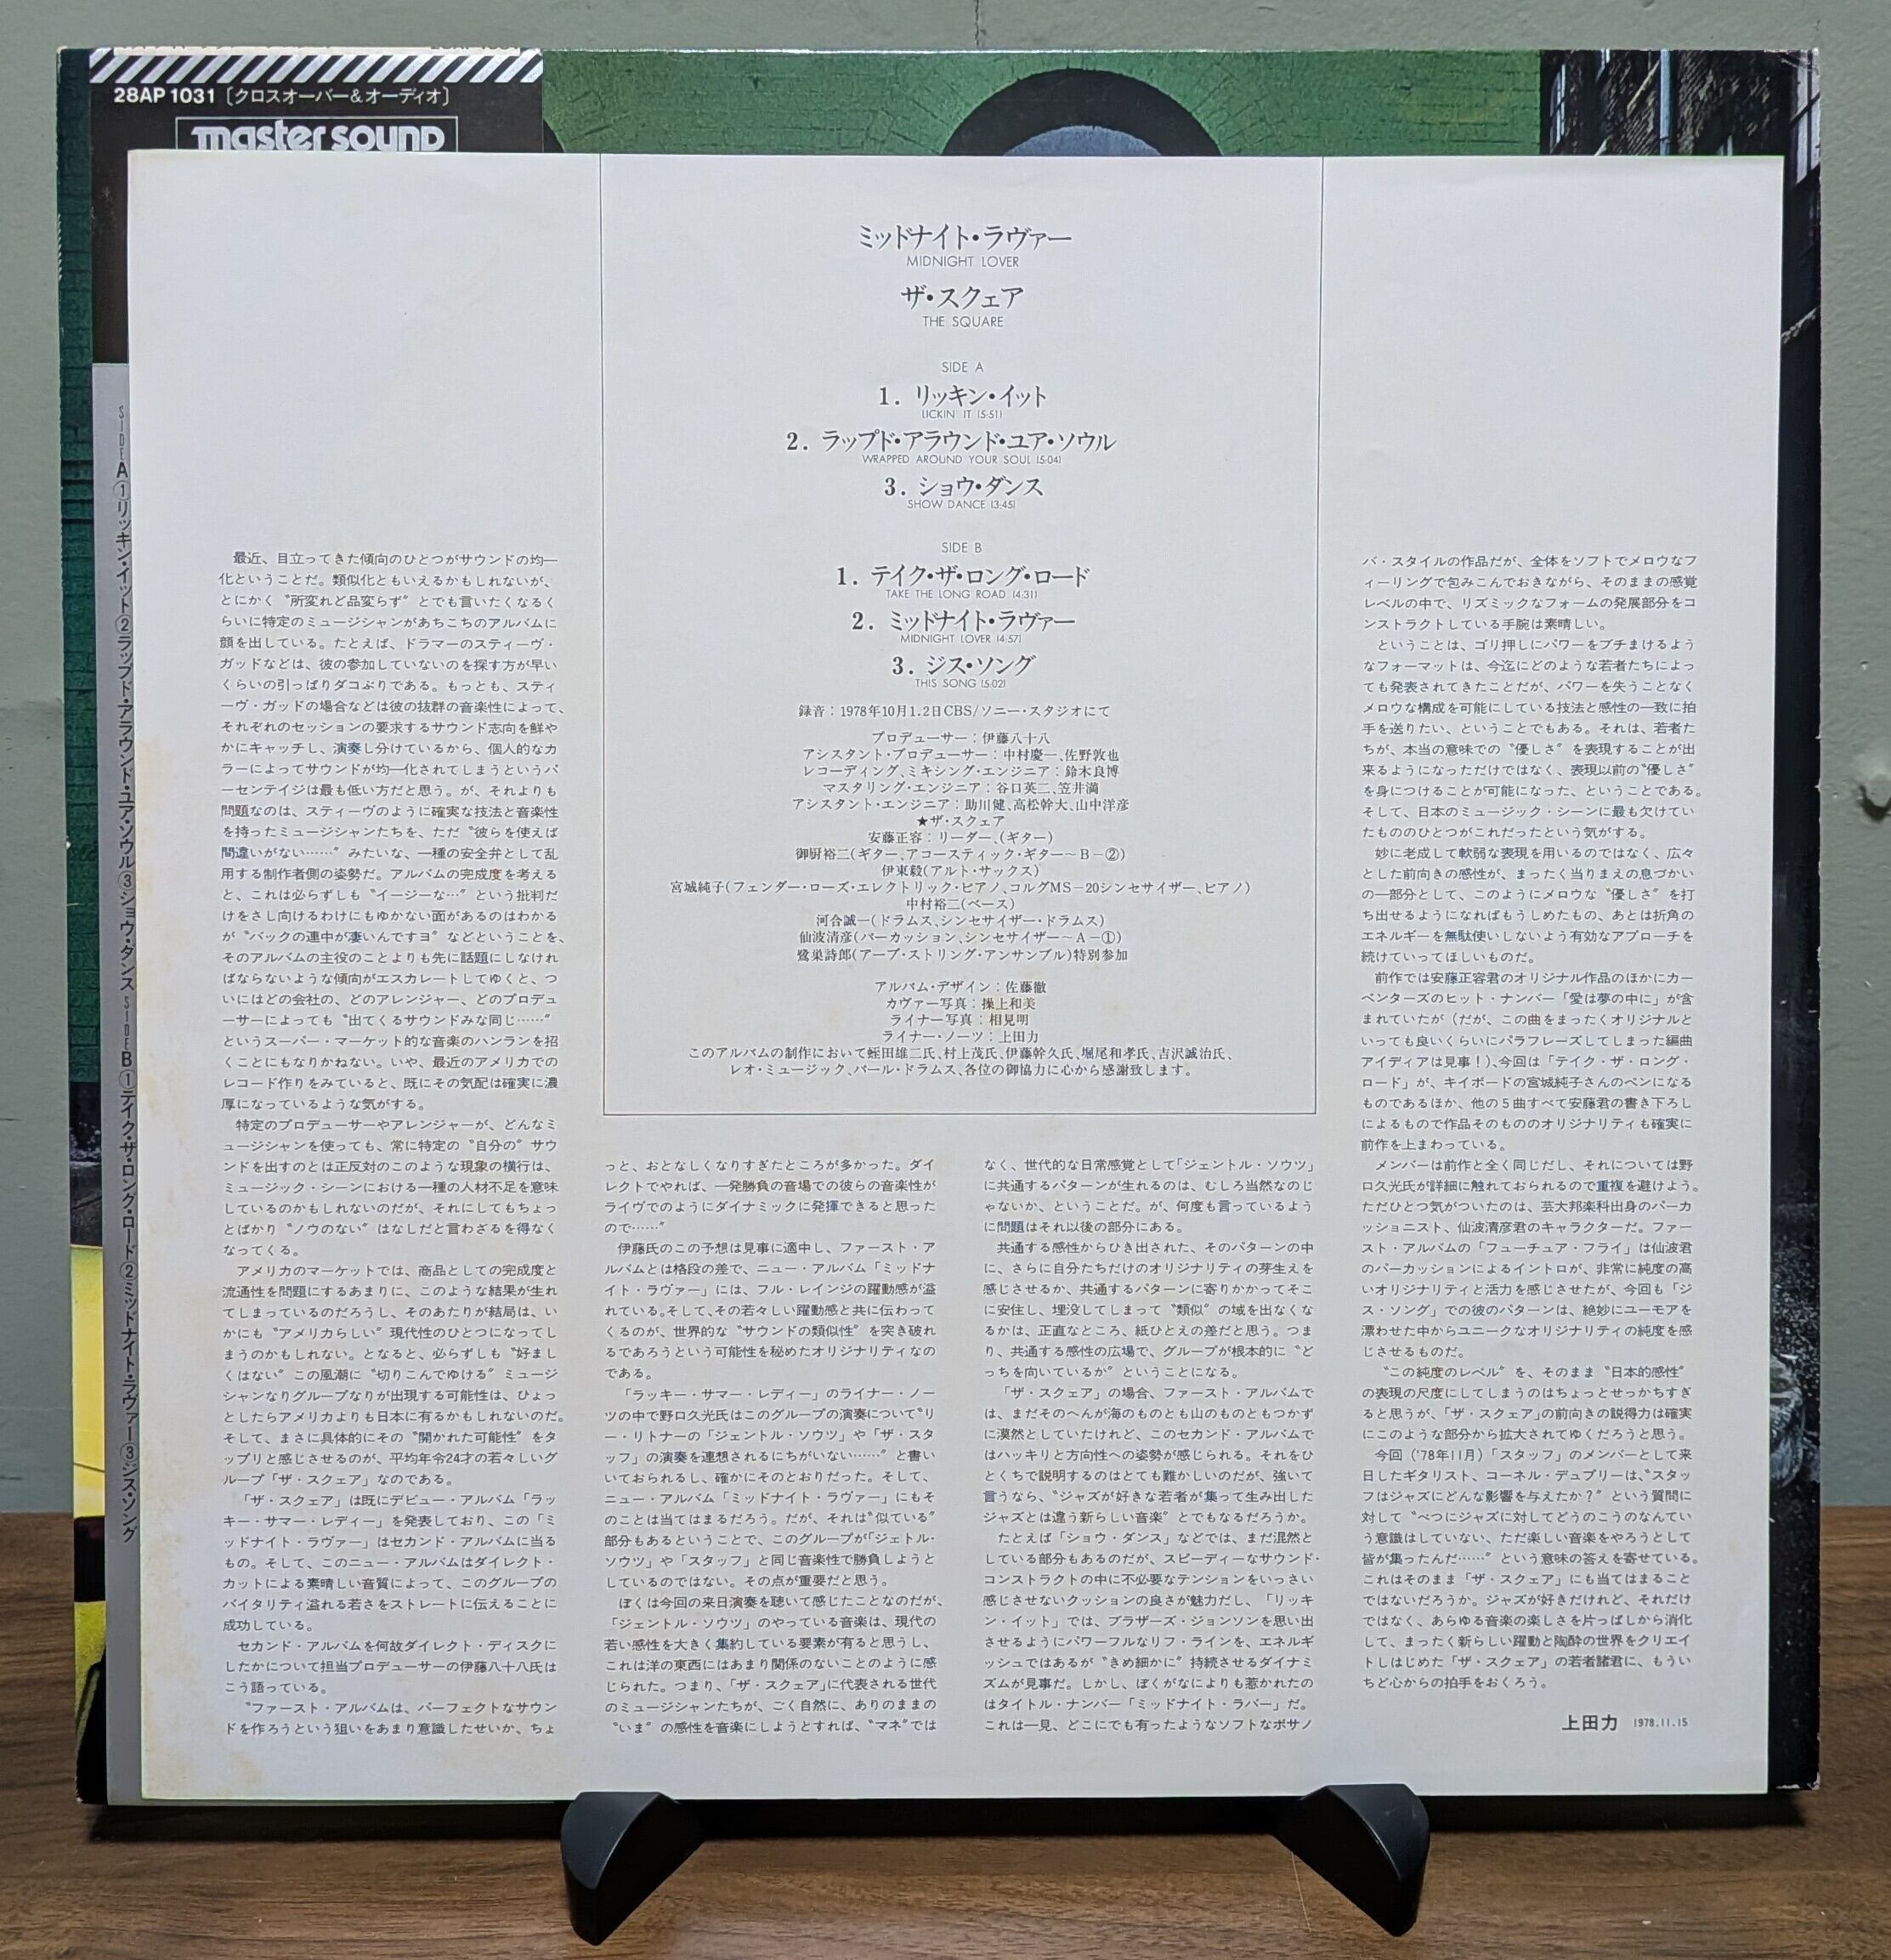 28AP 1031〔クロスオーバー&オーディオ〕
master sound
SIDE A①リッキン・イット②ラップド・アラウンド・ユア・ソウル③ショウ・ダンス SIDE B①テイク・ザ・ロング・ロード②ミッドナイト・ラヴァー③ジス・ソング
ミッドナイト・ラヴァー
MIDNIGHT LOVER
ザ・スクェア
THE SQUARE
SIDE A
1. リッキン・イット
LICKIN' IT (5:51)
2. ラップド・アラウンド・ユア・ソウル
WRAPPED AROUND YOUR SOUL (5:04)
3. ショウ・ダンス
SHOW DANCE (3:45)
SIDE B
1. テイク・ザ・ロング・ロード
TAKE THE LONG ROAD (4:31)
2. ミッドナイト・ラヴァー
MIDNIGHT LOVER (4:57)
3. ジス・ソング
THIS SONG (5:02)
録音：1978年10月1.2日CBS/ソニー・スタジオにて
プロデューサー：伊藤八十八
アシスタント・プロデューサー：中村慶一、佐野敦也
レコーディング、ミキシング・エンジニア：鈴木良博
マスタリング・エンジニア：谷口英二、笠井満
アシスタント・エンジニア：助川健、高松幹大、山中洋彦
★ザ・スクェア
安藤正容：リーダー、(ギター)
御厨裕二(ギター、アコースティック・ギター～B－②)
伊東毅(アルト・サックス)
宮城純子(フェンダー・ローズ・エレクトリック・ピアノ、コルグMS－20シンセサイザー、ピアノ)
中村裕二(ベース)
河合誠一(ドラムス、シンセサイザー・ドラムス)
仙波清彦(パーカッション、シンセサイザー～A－①)
鷺巣詩郎(アープ・ストリング・アンサンブル)特別参加
アルバム・デザイン：佐藤徹
カヴァー写真：操上和美
ライナー写真：相見明
ライナー・ノーツ：上田力
このアルバムの制作において蛭田雄二氏、村上茂氏、伊藤幹久氏、堀尾和孝氏、吉沢誠治氏、
レオ・ミュージック、パール・ドラムス、各位の御協力に心から感謝致します。
最近、目立ってきた傾向のひとつがサウンドの均一
化ということだ。類似化ともいえるかもしれないが、
とにかく〝所変れど品変らず〞とでも言いたくなるく
らいに特定のミュージシャンがあちこちのアルバムに
顔を出している。たとえば、ドラマーのスティーヴ・
ガッドなどは、彼の参加していないのを探す方が早い
くらいの引っぱりダコぶりである。もっとも、スティ
ーヴ・ガッドの場合などは彼の抜群の音楽性によって、
それぞれのセッションの要求するサウンド志向を鮮や
かにキャッチし、演奏し分けているから、個人的なカ
ラーによってサウンドが均一化されてしまうというパ
ーセンテイジは最も低い方だと思う。が、それよりも
問題なのは、スティーヴのように確実な技法と音楽性
を持ったミュージシャンたちを、ただ〝彼らを使えば
間違いがない……〞みたいな、一種の安全弁として乱
用する制作者側の姿勢だ。アルバムの完成度を考える
と、これは必らずしも〝イージーな…〞という批判だ
けをさし向けるわけにもゆかない面があるのはわかる
が〝バックの連中が凄いんですヨ〞などということを、
そのアルバムの主役のことよりも先に話題にしなけれ
ばならないような傾向がエスカレートしてゆくと、つ
いにはどの会社の、どのアレンジャー、どのプロデュ
ーサーによっても〝出てくるサウンドみな同じ……〞
というスーパー・マーケット的な音楽のハンランを招
くことにもなりかねない。いや、最近のアメリカでの
レコード作りをみていると、既にその気配は確実に濃
厚になっているような気がする。
特定のプロデューサーやアレンジャーが、どんなミ
ュージシャンを使っても、常に特定の〝自分の〞サウ
ンドを出すのとは正反対のこのような現象の横行は、
ミュージック・シーンにおける一種の人材不足を意味
しているのかもしれないのだが、それにしてもちょっ
とばかり〝ノウのない〞はなしだと言わざるを得なく
なってくる。
アメリカのマーケットでは、商品としての完成度と
流通性を問題にするあまりに、このような結果が生れ
てしまっているのだろうし、そのあたりが結局は、い
かにも〝アメリカらしい〞現代性のひとつになってし
まうのかもしれない。となると、必らずしも〝好まし
くはない〞この風潮に〝切りこんでゆける〞ミュージ
シャンなりグループなりが出現する可能性は、ひょっ
としたらアメリカよりも日本に有るかもしれないのだ。
そして、まさに具体的にその〝開かれた可能性〞をタ
ップリと感じさせるのが、平均年令24才の若々しいグ
ループ「ザ・スクェア」なのである。
「ザ・スクェア」は既にデビュー・アルバム「ラッ
キー・サマー・レディー」を発表しており、この「ミ
ッドナイト・ラヴァー」はセカンド・アルバムに当る
もの。そして、このニュー・アルバムはダイレクト・
カットによる素晴しい音質によって、このグループの
バイタリティ溢れる若さをストレートに伝えることに
成功している。
セカンド・アルバムを何故ダイレクト・ディスクに
したかについて担当プロデューサーの伊藤八十八氏は
こう語っている。
〝ファースト・アルバムは、パーフェクトなサウン
ドを作ろうという狙いをあまり意識したせいか、ちょ
っと、おとなしくなりすぎたところが多かった。ダイ
レクトでやれば、一発勝負の音場での彼らの音楽性が
ライヴでのようにダイナミックに発揮できると思った
ので……〞
伊藤氏のこの予想は見事に適中し、ファースト・ア
ルバムとは格段の差で、ニュー・アルバム「ミッドナ
イト・ラヴァー」には、フル・レインジの躍動感が溢
れている。そして、その若々しい躍動感と共に伝わって
くるのが、世界的な〝サウンドの類似性〞を突き破れ
るであろうという可能性を秘めたオリジナリティなの
である。
「ラッキー・サマー・レディー」のライナー・ノー
ツの中で野口久光氏はこのグループの演奏について〝リ
ー・リトナーの「ジェントル・ソウツ」や「ザ・スタ
ッフ」の演奏を連想されるにちがいない……〞と書い
ておられるし、確かにそのとおりだった。そして、
ニュー・アルバム「ミッドナイト・ラヴァー」にもそ
のことは当てはまるだろう。だが、それは〝似ている〞
部分もあるということで、このグループが「ジェトル・
ソウツ」や「スタッフ」と同じ音楽性で勝負しようと
しているのではない。その点が重要だと思う。
ぼくは今回の来日演奏を聴いて感じたことなのだが、
「ジェントル・ソウツ」のやっている音楽は、現代の
若い感性を大きく集約している要素が有ると思うし、
これは洋の東西にはあまり関係のないことのように感
じられた。つまり、「ザ・スクェア」に代表される世代
のミュージシャンたちが、ごく自然に、ありのままの
〝いま〞の感性を音楽にしようとすれば、〝マネ〞では
なく、世代的な日常感覚として「ジェントル・ソウツ」
に共通するパターンが生れるのは、むしろ当然なのじ
ゃないか、ということだ。が、何度も言っているよう
に問題はそれ以後の部分にある。
共通する感性からひき出された、そのパターンの中
に、さらに自分たちだけのオリジナリティの芽生えを
感じさせるか、共通するパターンに寄りかかってそこ
に安住し、埋没してしまって〝類似〞の域を出なくな
るかは、正直なところ、紙ひとえの差だと思う。つま
り、共通する感性の広場で、グループが根本的に〝ど
っちを向いているか〞ということになる。
「ザ・スクェア」の場合、ファースト・アルバムで
は、まだそのへんが海のものとも山のものともつかず
に漠然としていたけれど、このセカンド・アルバムで
はハッキリと方向性への姿勢が感じられる。それをひ
とくちで説明するのはとても難かしいのだが、強いて
言うなら、〝ジャズが好きな若者が集って生み出した
ジャズとは違う新しい音楽〞とでもなるだろうか。
たとえば「ショウ・ダンス」などでは、まだ混然と
している部分もあるのだが、スピーディーなサウンド・
コンストラクトの中に不必要なテンションをいっさい
感じさせないクッションの良さが魅力だし、「リッキ
ン・イット」では、ブラザーズ・ジョンソンを思い出
させるようにパワーフルなリフ・ラインを、エネルギ
ッシュではあるが〝きめ細かに〞持続させるダイナミ
ズムが見事だ。しかし、ぼくがなによりも惹かれたの
はタイトル・ナンバー「ミッドナイト・ラバー」だ。
これは一見、どこにでも有ったようなソフトなボサノ
バ・スタイルの作品だが、全体をソフトでメロウなフ
ィーリングで包みこんでおきながら、そのままの感覚
レベルの中で、リズミックなフォームの発展部分をコ
ンストラクトしている手腕は素晴しい。
ということは、ゴリ押しにパワーをブチまけるよう
なフォーマットは、今迄にどのような若者たちによっ
ても発表されてきたことだが、パワーを失うことなく
メロウな構成を可能にしている技法と感性の一致に拍
手を送りたい、ということでもある。それは、若者た
ちが、本当の意味での〝優しさ〞を表現することが出
来るようになっただけではなく、表現以前の〝優しさ〞
を身につけることが可能になった、ということである。
そして、日本のミュージック・シーンに最も欠けてい
たもののひとつがこれだったという気がする。
妙に老成して軟弱な表現を用いるのではなく、広々
とした前向きの感性が、まったく当りまえの息づかい
の一部分として、このようにメロウな〝優しさ〞を打
ち出せるようになればもうしめたもの、あとは折角の
エネルギーを無駄使いしないよう有効なアプローチを
続けていってほしいものだ。
前作では安藤正容君のオリジナル作品のほかにカー
ペンターズのヒット・ナンバー「愛は夢の中に」が含
まれていたが（だが、この曲をまったくオリジナルと
いっても良いくらいにパラフレーズしてしまった編曲
アイディアは見事！）、今回は「テイク・ザ・ロング・
ロード」が、キイボードの宮城純子さんのペンになる
ものであるほか、他の5曲すべて安藤君の書き下ろし
によるもので作品そのもののオリジナリティも確実に
前作を上まわっている。
メンバーは前作と全く同じだし、それについては野
口久光氏が詳細に触れておられるので重複を避けよう。
ただひとつ気がついたのは、芸大邦楽科出身のパーカ
ッショニスト、仙波清彦君のキャラクターだ。ファー
スト・アルバムの「フューチュア・フライ」は仙波君
のパーカッションによるイントロが、非常に純度の高
いオリジナリティと活力を感じさせたが、今回も「ジ
ス・ソング」での彼のパターンは、絶妙にユーモアを
漂わせた中からユニークなオリジナリティの純度を感
じさせるものだ。
〝この純度のレベル〞を、そのまま〝日本的感性〞
の表現の尺度にしてしまうのはちょっとせっかちすぎ
ると思うが、「ザ・スクェア」の前向きの説得力は確実
にこのような部分から拡大されてゆくだろうと思う。
今回（'78年11月）「スタッフ」のメンバーとして来
日したギタリスト、コーネル・デュプリーは、〝スタッ
フはジャズにどんな影響を与えたか？〞という質問に
対して〝べつにジャズに対してどうのこうのなんてい
う意識はしていない、ただ楽しい音楽をやろうとして
皆が集ったんだ……〞という意味の答えを寄せている。
これはそのまま「ザ・スクェア」にも当てはまること
ではないだろうか。ジャズが好きだけれど、それだけ
ではなく、あらゆる音楽の楽しさを片っぱしから消化
して、まったく新らしい躍動と陶酔の世界をクリエイ
トしはじめた「ザ・スクェア」の若者諸君に、もうい
ちど心からの拍手をおくろう。
上田力 1978.11.15